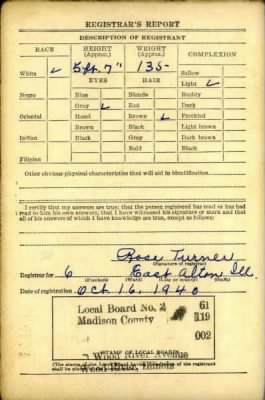 REGISTRAR'S REPORT
DESCRIPTION OF REGISTRANT
RACE HEIGHT (Approx.) WEIGHT (Approx.) COMPLEXION
White ✓ 5ft. 7" 135 Sallow
EYES HAIR Light ✓
Negro Blue Blonde Ruddy
Gray ✓ Red Dark
Oriental Hazel Brown ✓ Freckled
Brown Black Light brown
Indian Black Gray Dark brown
Bald Black
Filipino
Other obvious physical characteristics that will aid in identification
I certify that my answers are true; that the person registered has read or has had
read to him his own answers; that I have witnessed his signature or mark and that
all of his answers of which I have knowledge are true, except as follows:
Rose Turner
(Signature of registrar)
Registrar for 6 East Alton Ill.
(Precinct) (Ward) (City or county) (State)
Date of registration Oct 16, 1940
Local Board No. 2 61
Madison County 119
002
Wood River Avenue
STAMP OF LOCAL BOARD
Wood River, Illinois
(The stamp of the Local Board having jurisdiction of the registrant
shall be placed